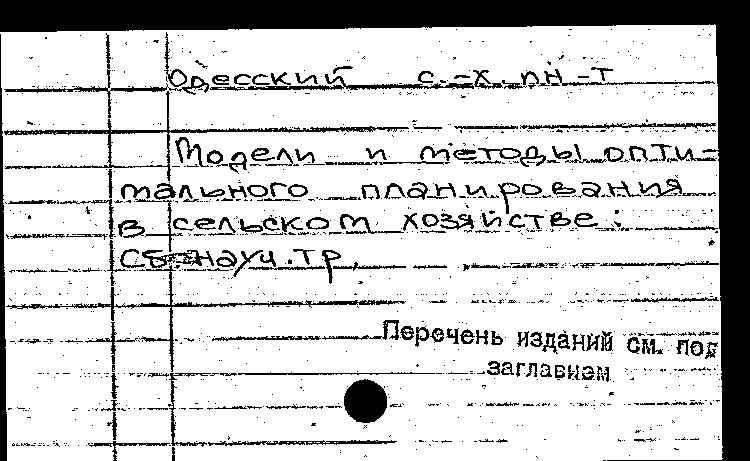 Одесский с.-х. ин-т
Модели и методы опти-
мального планирования
в сельском хозяйстве:
Сб. науч. тр.
Перечень изданий см. под
заглавием